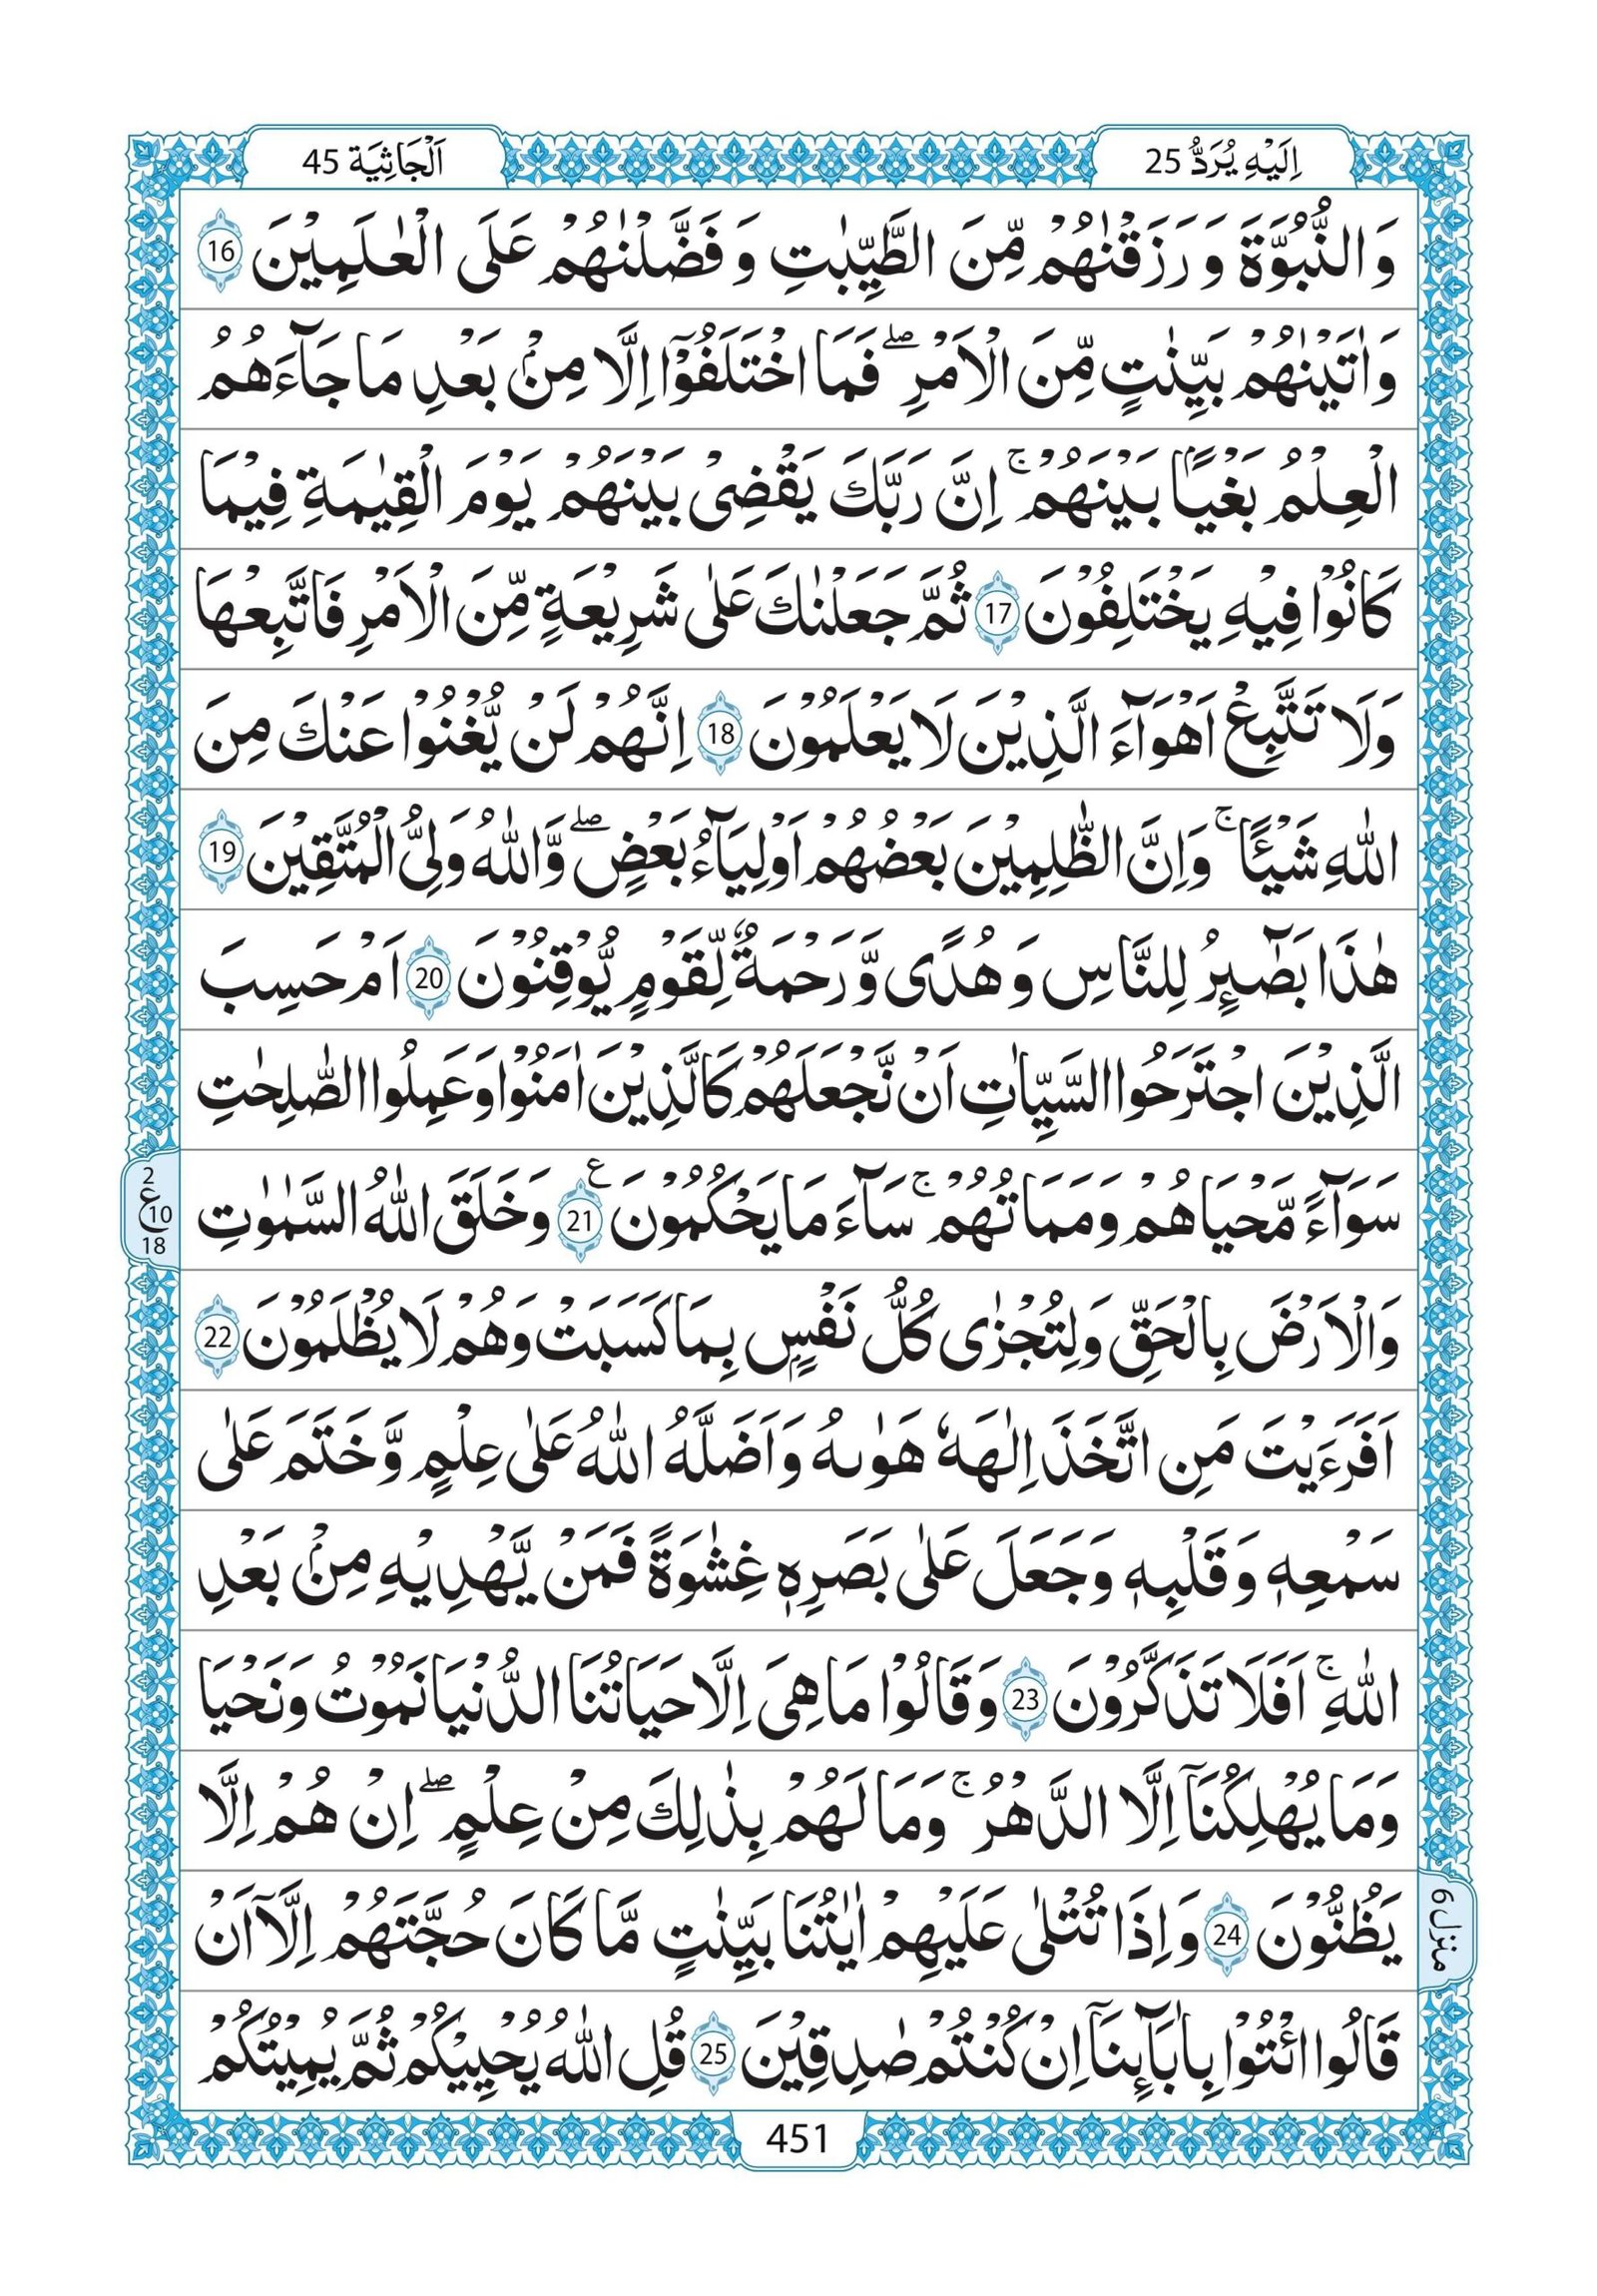 اِلَيْهِ يُرَدُّ 25
اَلْجَاثِيَة 45
وَالنُّبُوَّةَ وَ رَزَقْنٰهُمْ مِّنَ الطَّيِّبٰتِ وَ فَضَّلْنٰهُمْ عَلَى الْعٰلَمِيْنَ 16
وَاٰتَيْنٰهُمْ بَيِّنٰتٍ مِّنَ الْاَمْرِ ۖ فَمَا اخْتَلَفُوْۤا اِلَّا مِنْۢ بَعْدِ مَا جَآءَهُمُ
الْعِلْمُ بَغْيًاۢ بَيْنَهُمْ ۚ اِنَّ رَبَّكَ يَقْضِىْ بَيْنَهُمْ يَوْمَ الْقِيٰمَةِ فِيْمَا
كَانُوْا فِيْهِ يَخْتَلِفُوْنَ 17 ثُمَّ جَعَلْنٰكَ عَلٰى شَرِيْعَةٍ مِّنَ الْاَمْرِ فَاتَّبِعْهَا
وَلَا تَتَّبِعْ اَهْوَآءَ الَّذِيْنَ لَا يَعْلَمُوْنَ 18 اِنَّهُمْ لَنْ يُّغْنُوْا عَنْكَ مِنَ
اللّٰهِ شَيْـًٔا ۚ وَاِنَّ الظّٰلِمِيْنَ بَعْضُهُمْ اَوْلِيَآءُ بَعْضٍ ۖ وَّاللّٰهُ وَلِىُّ الْمُتَّقِيْنَ 19
هٰذَا بَصَآٮِٕرُ لِلنَّاسِ وَ هُدًى وَّ رَحْمَةٌ لِّقَوْمٍ يُّوْقِنُوْنَ 20 اَمْ حَسِبَ
الَّذِيْنَ اجْتَرَحُوا السَّيِّاٰتِ اَنْ نَّجْعَلَهُمْ كَالَّذِيْنَ اٰمَنُوْا وَعَمِلُوا الصّٰلِحٰتِ
سَوَآءً مَّحْيَاهُمْ وَمَمَاتُهُمْ ۚ سَآءَ مَا يَحْكُمُوْنَ 21 ع وَخَلَقَ اللّٰهُ السَّمٰوٰتِ
2
ع 10
18
وَالْاَرْضَ بِالْحَقِّ وَلِتُجْزٰى كُلُّ نَفْسٍۢ بِمَا كَسَبَتْ وَهُمْ لَا يُظْلَمُوْنَ 22
اَفَرَءَيْتَ مَنِ اتَّخَذَ اِلٰهَهٗ هَوٰىهُ وَاَضَلَّهُ اللّٰهُ عَلٰى عِلْمٍ وَّخَتَمَ عَلٰى
سَمْعِهٖ وَ قَلْبِهٖ وَجَعَلَ عَلٰى بَصَرِهٖ غِشٰوَةً فَمَنْ يَّهْدِيْهِ مِنْۢ بَعْدِ
اللّٰهِ ۚ اَفَلَا تَذَكَّرُوْنَ 23 وَقَالُوْا مَا هِىَ اِلَّا حَيَاتُنَا الدُّنْيَا نَمُوْتُ وَنَحْيَا
وَمَا يُهْلِكُنَاۤ اِلَّا الدَّهْرُ ۚ وَمَا لَهُمْ بِذٰلِكَ مِنْ عِلْمٍ ۖ اِنْ هُمْ اِلَّا
يَظُنُّوْنَ 24 وَاِذَا تُتْلٰى عَلَيْهِمْ اٰيٰتُنَا بَيِّنٰتٍ مَّا كَانَ حُجَّتَهُمْ اِلَّاۤ اَنْ
منزل 6
قَالُوا ائْتُوْا بِاٰبَآٮِٕنَاۤ اِنْ كُنْتُمْ صٰدِقِيْنَ 25 قُلِ اللّٰهُ يُحْيِيْكُمْ ثُمَّ يُمِيْتُكُمْ
451